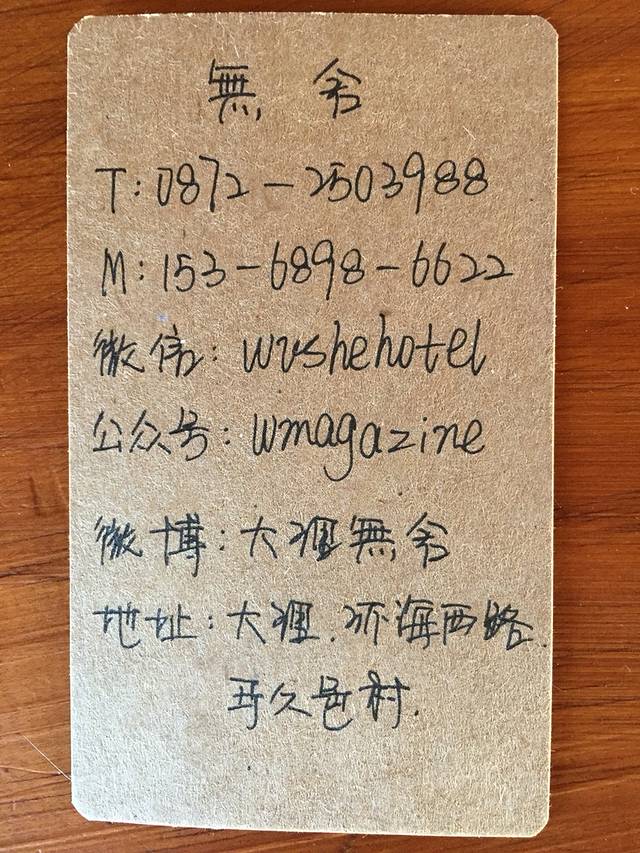 無舍
T:0872-2503988
M:153-6898-6622
微信:wushehotel
公众号:wmagazine
微博:大理無舍
地址:大理.环海西路.
马久邑村.